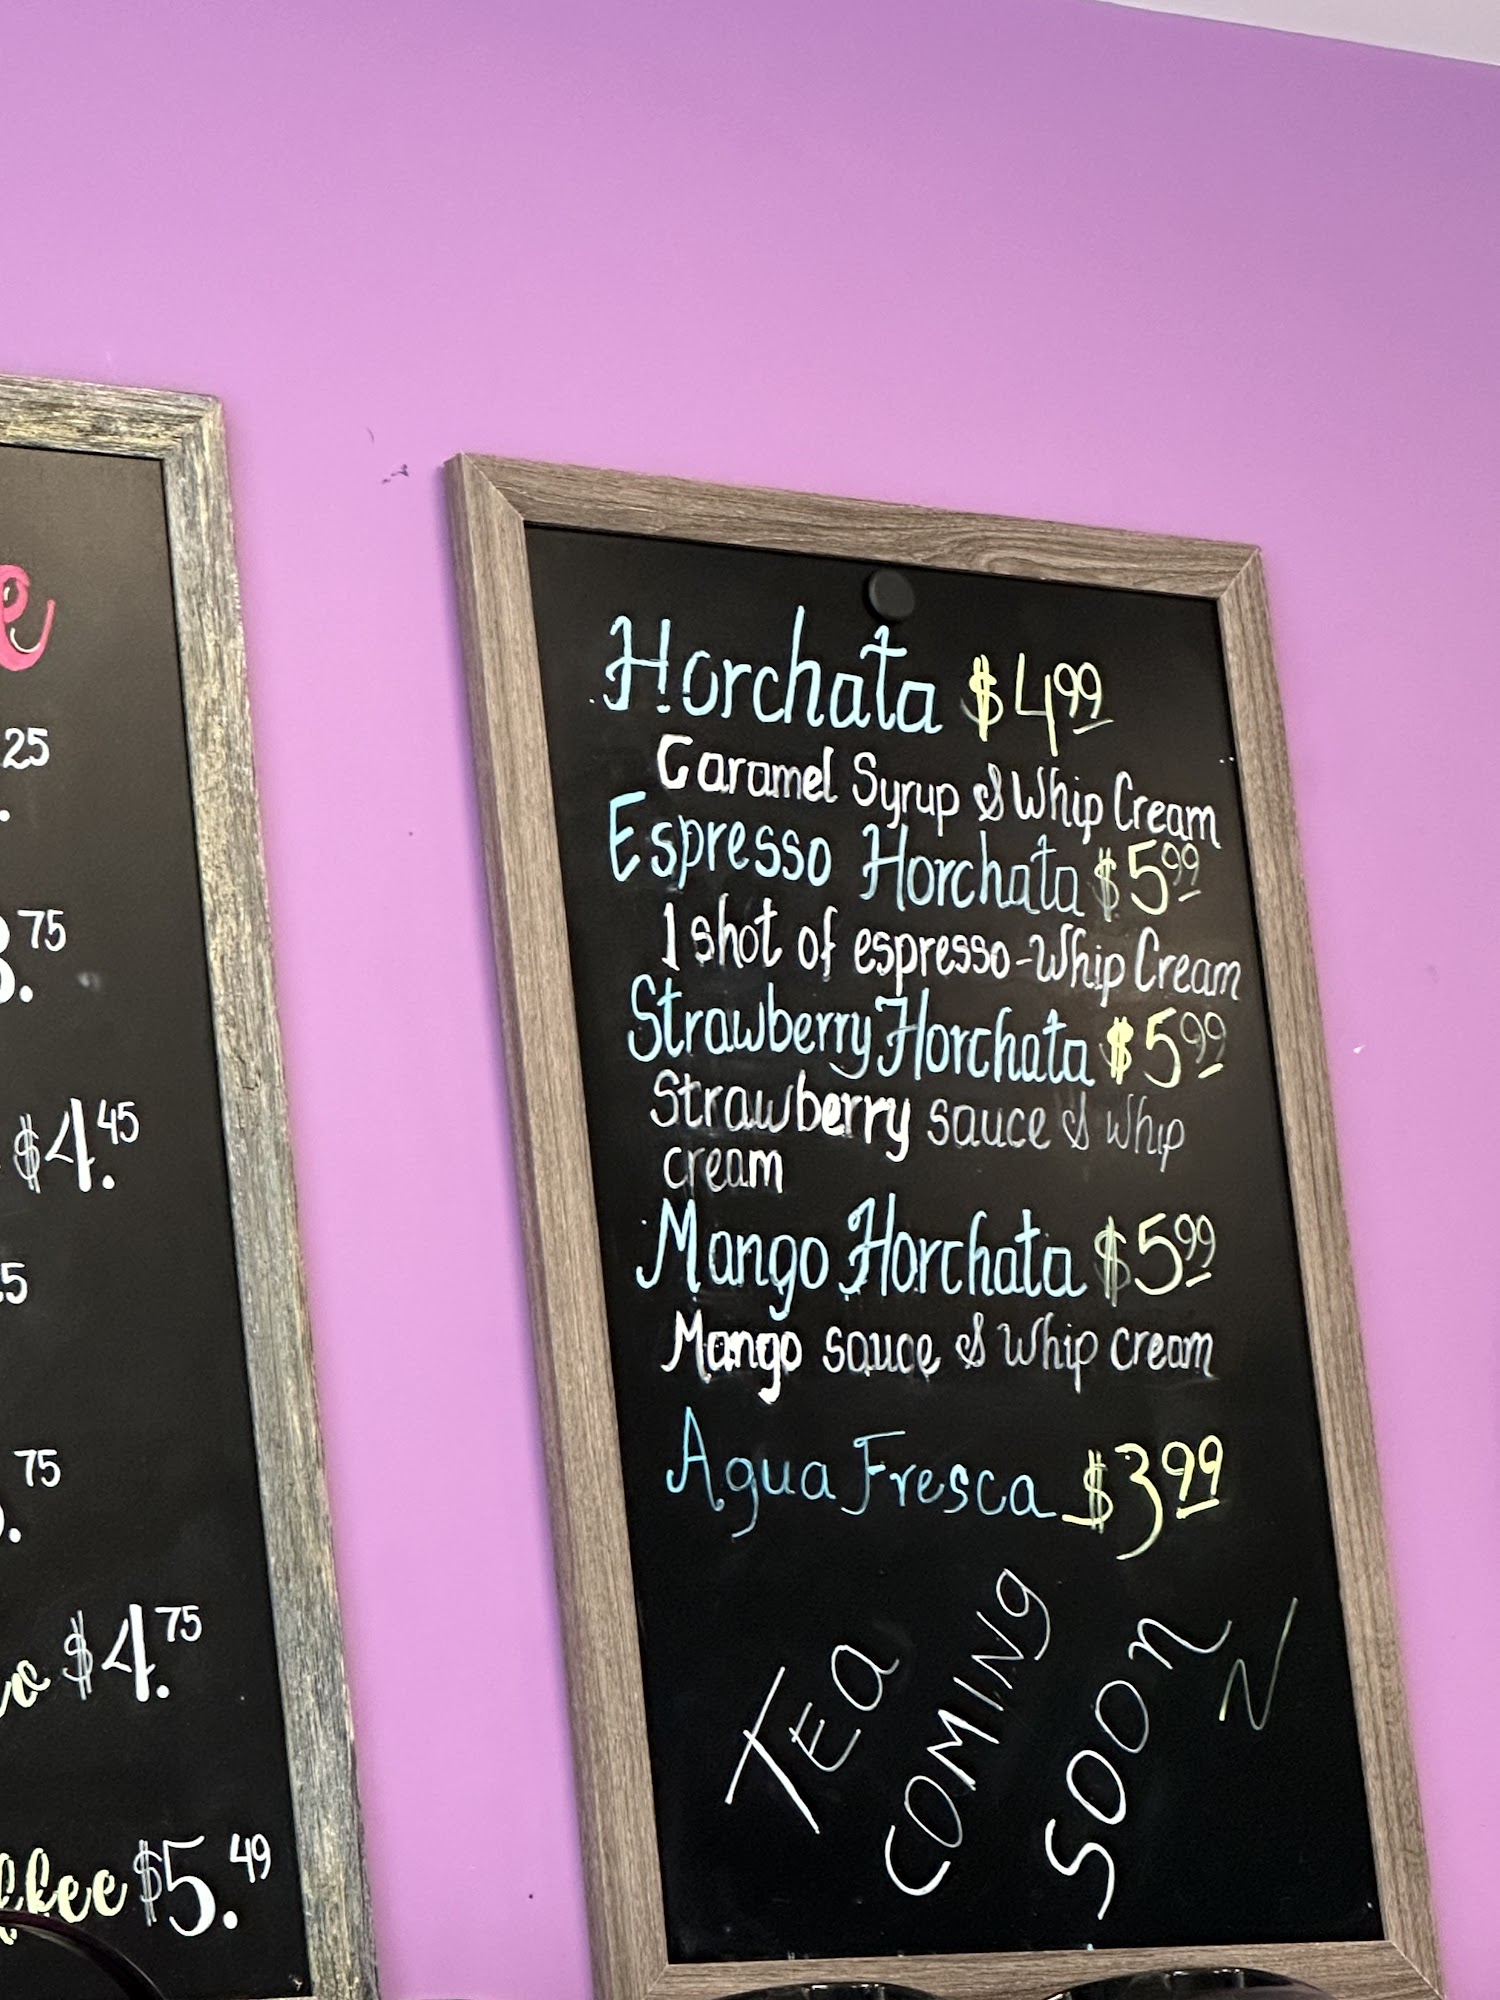 e
25
.75
$4.45
5
.75
$4.75
ffee $5.49
Horchata $4.99
Caramel Syrup & Whip Cream
Espresso Horchata $5.99
1 shot of espresso-Whip Cream
Strawberry Horchata $5.99
Strawberry sauce & Whip
cream
Mango Horchata $5.99
Mango sauce & Whip cream
Agua Fresca $3.99
TEA
COMING
SOON